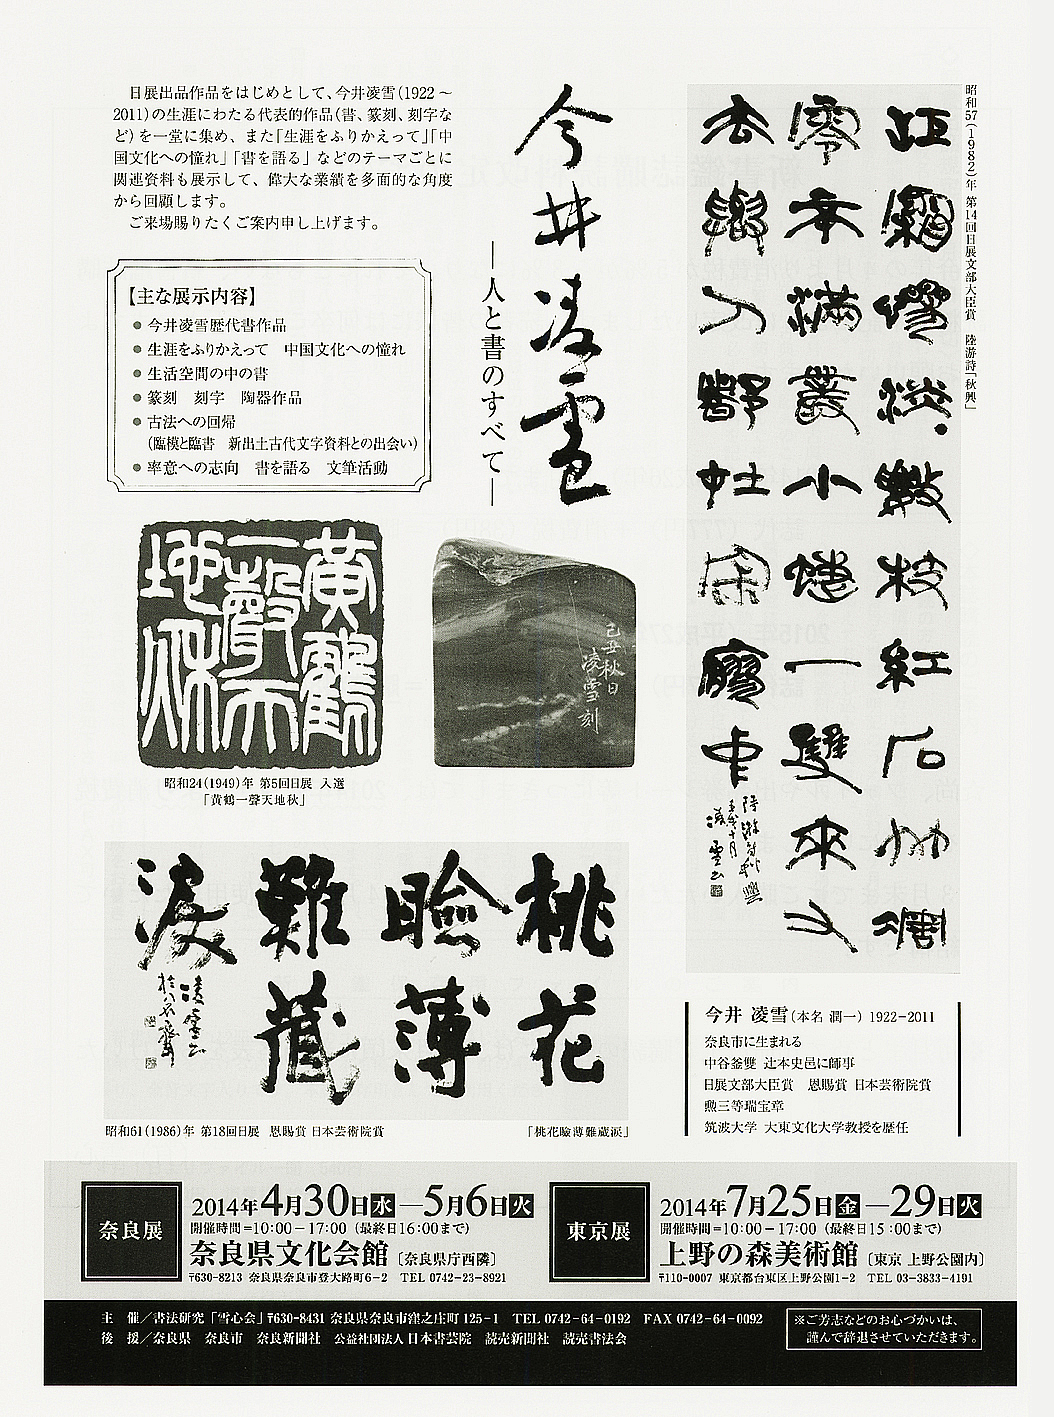 日展出品作品をはじめとして、今井凌雪(1922～
2011)の生涯にわたる代表的作品(書、篆刻、刻字な
ど)を一堂に集め、また「生涯をふりかえって」「中
国文化への憧れ」「書を語る」などのテーマごとに
関連資料も展示して、偉大な業績を多面的な角度
から回顧します。
ご来場賜りたくご案内申し上げます。
今井凌雪
―人と書のすべて―
【主な展示内容】
●今井凌雪歴代書作品
●生涯をふりかえって　中国文化への憧れ
●生活空間の中の書
●篆刻　刻字　陶器作品
●古法への回帰
(臨模と臨書　新出土古代文字資料との出会い)
●率意への志向　書を語る　文筆活動
昭和57(1982)年 第14回日展文部大臣賞　陸游詩「秋興」
江
零
去
黄鶴
一聲天
地秋
己丑秋日
凌雪刻
昭和24(1949)年 第5回日展 入選
「黄鶴一聲天地秋」
桃花
臉薄
難蔵
涙
昭和61(1986)年 第18回日展　恩賜賞 日本芸術院賞
「桃花臉薄難蔵涙」
今井 凌雪(本名 潤一) 1922−2011
奈良市に生まれる
中谷釜雙　辻本史邑に師事
日展文部大臣賞　恩賜賞 日本芸術院賞
勲三等瑞宝章
筑波大学　大東文化大学教授を歴任
奈良展
2014年4月30日水―5月6日火
開催時間＝10:00－17:00（最終日16:00まで）
奈良県文化会館〔奈良県庁西隣〕
〒630-8213 奈良県奈良市登大路町6-2　TEL 0742-23-8921
東京展
2014年7月25日金―29日火
開催時間＝10:00－17:00（最終日15:00まで）
上野の森美術館〔東京 上野公園内〕
〒110-0007 東京都台東区上野公園1-2　TEL 03-3833-4191
主　催／書法研究「雪心会」〒630-8431 奈良県奈良市窪之庄町125-1　TEL 0742-64-0192　FAX 0742-64-0092
後　援／奈良県　奈良市　奈良新聞社　公益社団法人 日本書芸院　読売新聞社　読売書法会
※ご芳志などのお心づかいは、
謹んで辞退させていただきます。